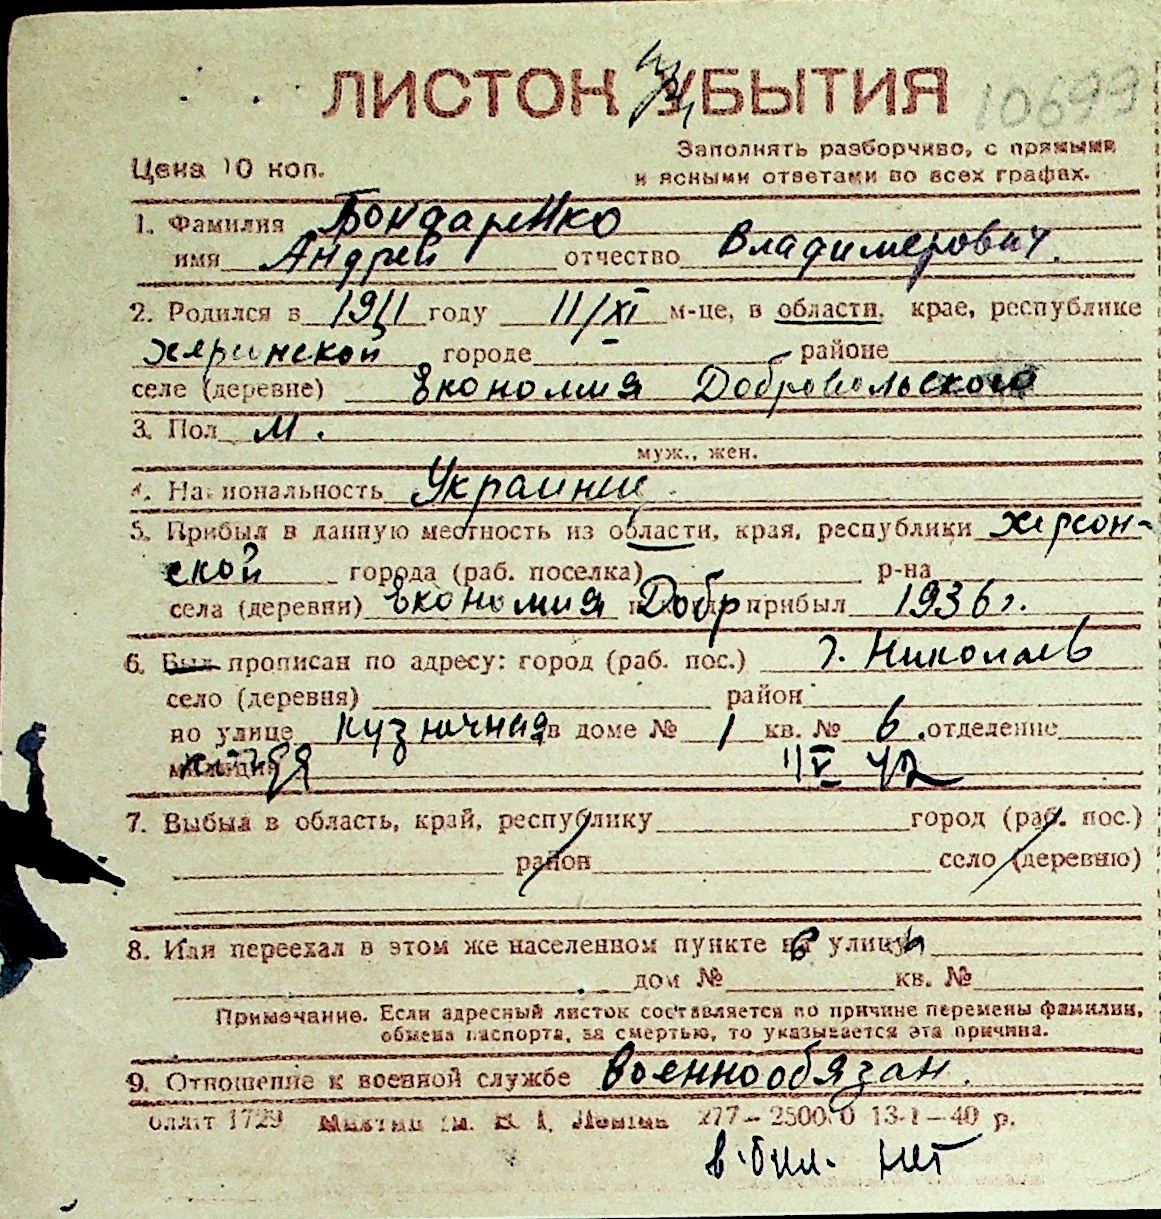 ЛИСТОК УБЫТИЯ
10699
Цена 10 коп.
Заполнять разборчиво, с прямыми
и ясными ответами во всех графах.
1. Фамилия Бондаренко
имя Андрей отчество Владимерович.
2. Родился в 1911 году 11/XI м-це, в области, крае, республике
херсонской городе – районе
селе (деревне) Економия Добровольского
3. Пол М.
муж., жен.
4. Национальность Украинец
5. Прибыл в данную местность из области, края, республики Херсон-
ской города (раб. поселка) р-на
села (деревни) Економия Добр прибыл 1936 г.
6. Был прописан по адресу: город (раб. пос.) г. Николаев
село (деревня) район
по улице Кузнечная в доме № 1 кв. № 6. отделение
милиции 11 V 42
7. Выбыл в область, край, республику город (раб. пос.)
район село (деревню)
8. Или переехал в этом же населенном пункте на улицу
дом № кв. №
Примечание. Если адресный листок составляется по причине перемены фамилии,
обмена паспорта, за смертью, то указывается эта причина.
9. Отношение к военной службе Военнообязан.
1729 277–25000 13-1–40 р.
нет